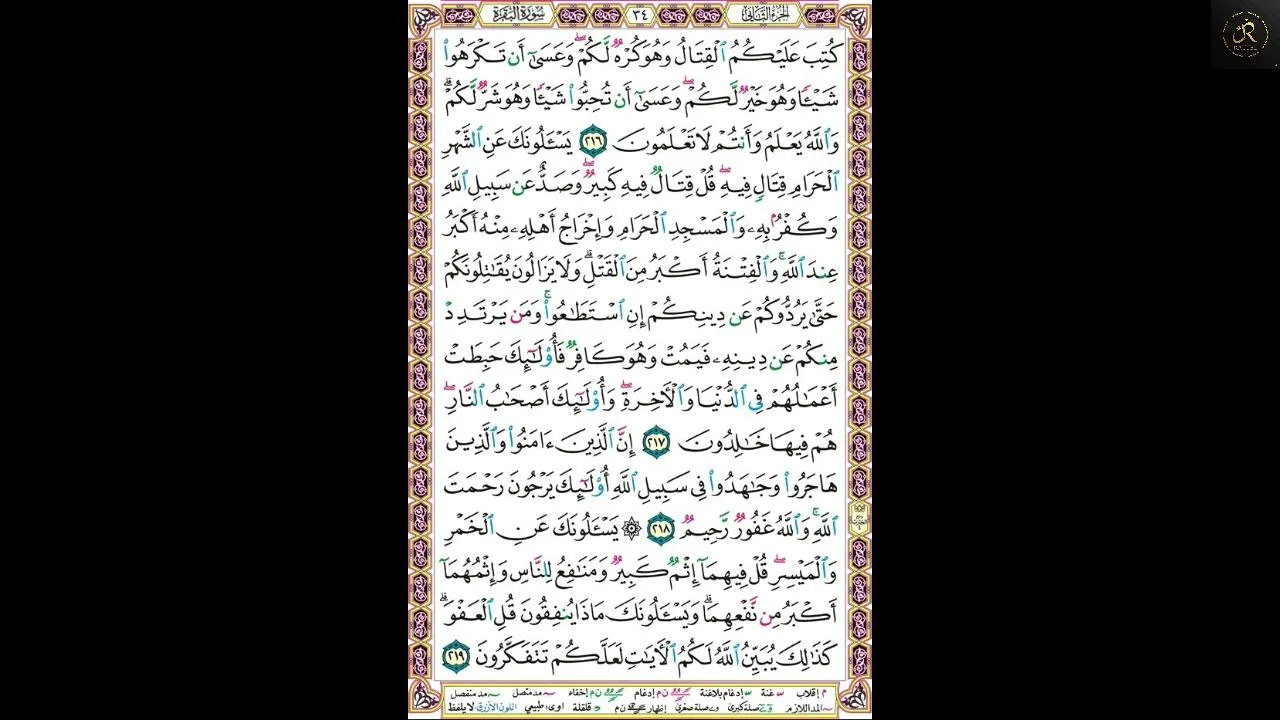 الجزء الثاني ٣٤ سورة البقرة
كُتِبَ عَلَيْكُمُ ٱلْقِتَالُ وَهُوَ كُرْهٌ لَّكُمْ ۖ وَعَسَىٰٓ أَن تَكْرَهُوا۟
شَيْـًٔا وَهُوَ خَيْرٌ لَّكُمْ ۖ وَعَسَىٰٓ أَن تُحِبُّوا۟ شَيْـًٔا وَهُوَ شَرٌّ لَّكُمْ ۗ
وَٱللَّهُ يَعْلَمُ وَأَنتُمْ لَا تَعْلَمُونَ ٢١٦ يَسْـَٔلُونَكَ عَنِ ٱلشَّهْرِ
ٱلْحَرَامِ قِتَالٍ فِيهِ ۖ قُلْ قِتَالٌ فِيهِ كَبِيرٌ ۖ وَصَدٌّ عَن سَبِيلِ ٱللَّهِ
وَكُفْرٌۢ بِهِۦ وَٱلْمَسْجِدِ ٱلْحَرَامِ وَإِخْرَاجُ أَهْلِهِۦ مِنْهُ أَكْبَرُ
عِندَ ٱللَّهِ ۚ وَٱلْفِتْنَةُ أَكْبَرُ مِنَ ٱلْقَتْلِ ۗ وَلَا يَزَالُونَ يُقَـٰتِلُونَكُمْ
حَتَّىٰ يَرُدُّوكُمْ عَن دِينِكُمْ إِنِ ٱسْتَطَـٰعُوا۟ ۚ وَمَن يَرْتَدِدْ
مِنكُمْ عَن دِينِهِۦ فَيَمُتْ وَهُوَ كَافِرٌ فَأُو۟لَـٰٓئِكَ حَبِطَتْ
أَعْمَـٰلُهُمْ فِى ٱلدُّنْيَا وَٱلْـَٔاخِرَةِ ۖ وَأُو۟لَـٰٓئِكَ أَصْحَـٰبُ ٱلنَّارِ ۖ
هُمْ فِيهَا خَـٰلِدُونَ ٢١٧ إِنَّ ٱلَّذِينَ ءَامَنُوا۟ وَٱلَّذِينَ
هَاجَرُوا۟ وَجَـٰهَدُوا۟ فِى سَبِيلِ ٱللَّهِ أُو۟لَـٰٓئِكَ يَرْجُونَ رَحْمَتَ
ٱللَّهِ ۚ وَٱللَّهُ غَفُورٌ رَّحِيمٌ ٢١٨ ۞ يَسْـَٔلُونَكَ عَنِ ٱلْخَمْرِ
وَٱلْمَيْسِرِ ۖ قُلْ فِيهِمَآ إِثْمٌ كَبِيرٌ وَمَنَـٰفِعُ لِلنَّاسِ وَإِثْمُهُمَآ
أَكْبَرُ مِن نَّفْعِهِمَا ۗ وَيَسْـَٔلُونَكَ مَاذَا يُنفِقُونَ قُلِ ٱلْعَفْوَ ۗ
كَذَٰلِكَ يُبَيِّنُ ٱللَّهُ لَكُمُ ٱلْـَٔايَـٰتِ لَعَلَّكُمْ تَتَفَكَّرُونَ ٢١٩
م إقلاب غنة إدغام بلاغنة ن م إدغام ن م إخفاء مد متصل مد منفصل
المد اللازم صلة كبرى صلة صغرى إظهار ن م قلقلة اوى طبيعي اللون الأزرق لايلفظ